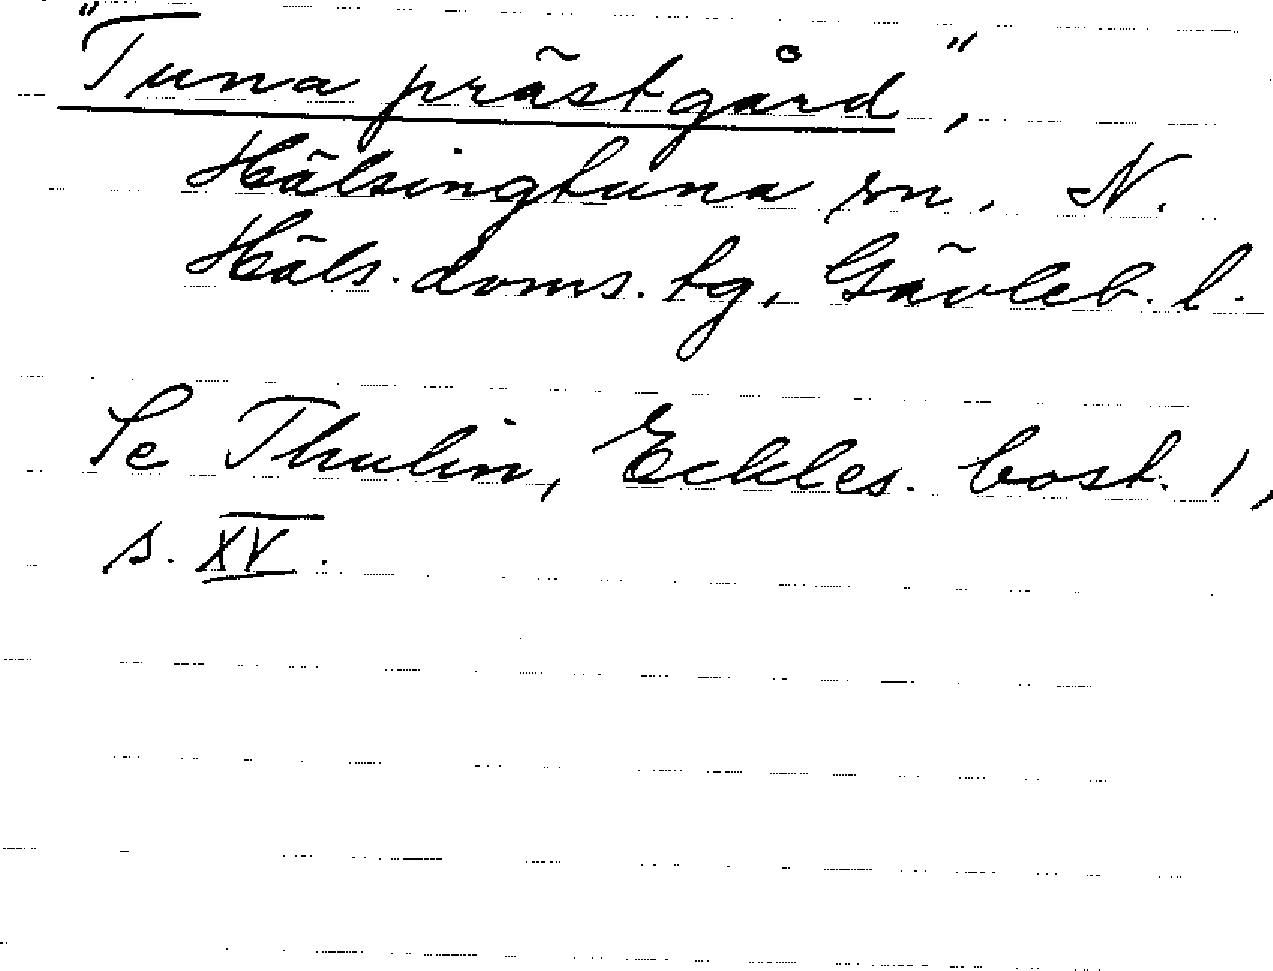 "Tuna prästgård",
Hälsingtuna sn, N.
Häls. doms. tg, Gävleb. l.
Se Thulin, Eckles. bost. 1,
s. XV.